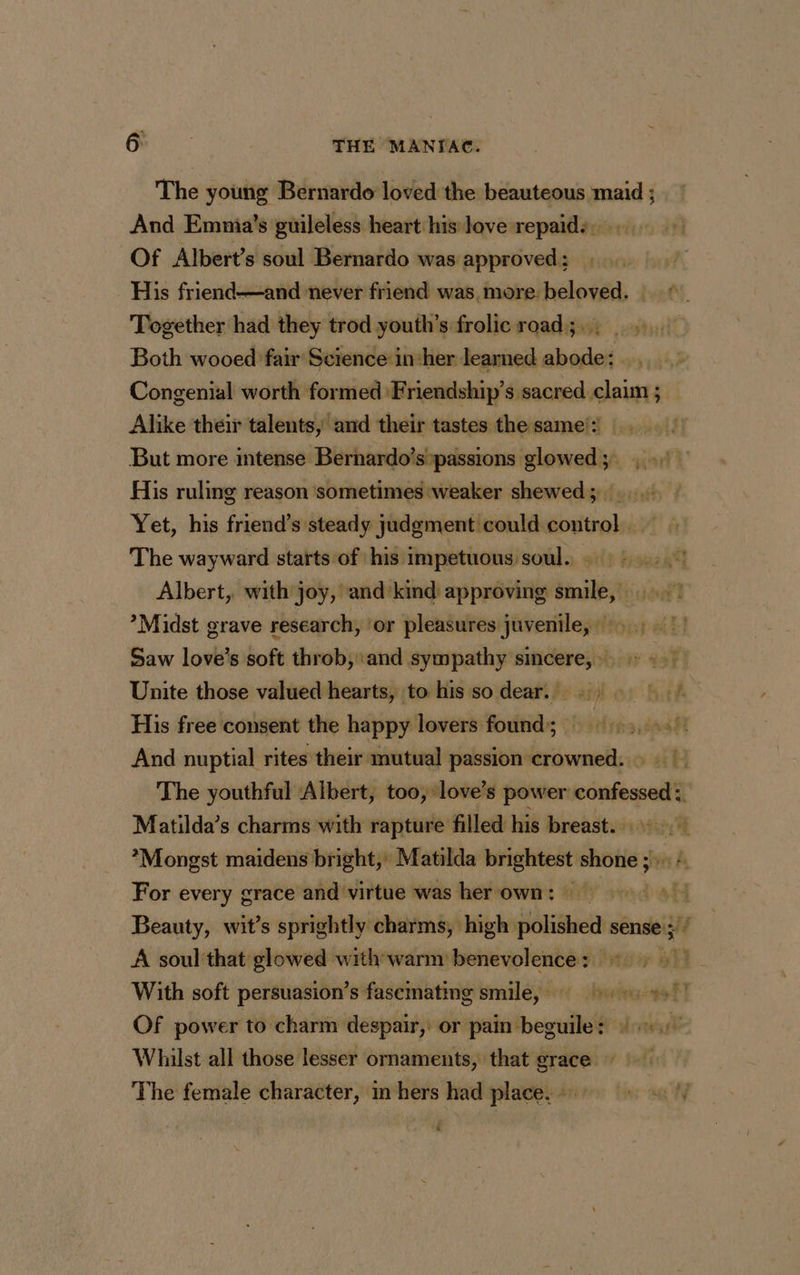 6 THE MANIAC.
The young Bernardo loved the beauteous maid;
And Emma's guileless heart his love repaid.
Of Albert's soul Bernardo was approved;
His friend—and never friend was more beloved.
Together had they trod youth's frolic road;
Both wooed fair Science in her learned abode:
Congenial worth formed Friendship's sacred claim;
Alike their talents, and their tastes the same:
But more intense Bernardo's passions glowed;
His ruling reason sometimes weaker shewed;
Yet, his friend's steady judgment could control
The wayward starts of his impetuous soul.
Albert, with joy, and kind approving smile,
'Midst grave research, or pleasures juvenile,
Saw love's soft throb, and sympathy sincere,
Unite those valued hearts, to his so dear.
His free consent the happy lovers found;
And nuptial rites their mutual passion crowned.
The youthful Albert, too, love's power confessed:
Matilda's charms with rapture filled his breast.
'Mongst maidens bright, Matilda brightest shone;
For every grace and virtue was her own:
Beauty, wit's sprightly charms, high polished sense;
A soul that glowed with warm benevolence:
With soft persuasion's fascinating smile,
Of power to charm despair, or pain beguile:
Whilst all those lesser ornaments, that grace
The female character, in hers had place.